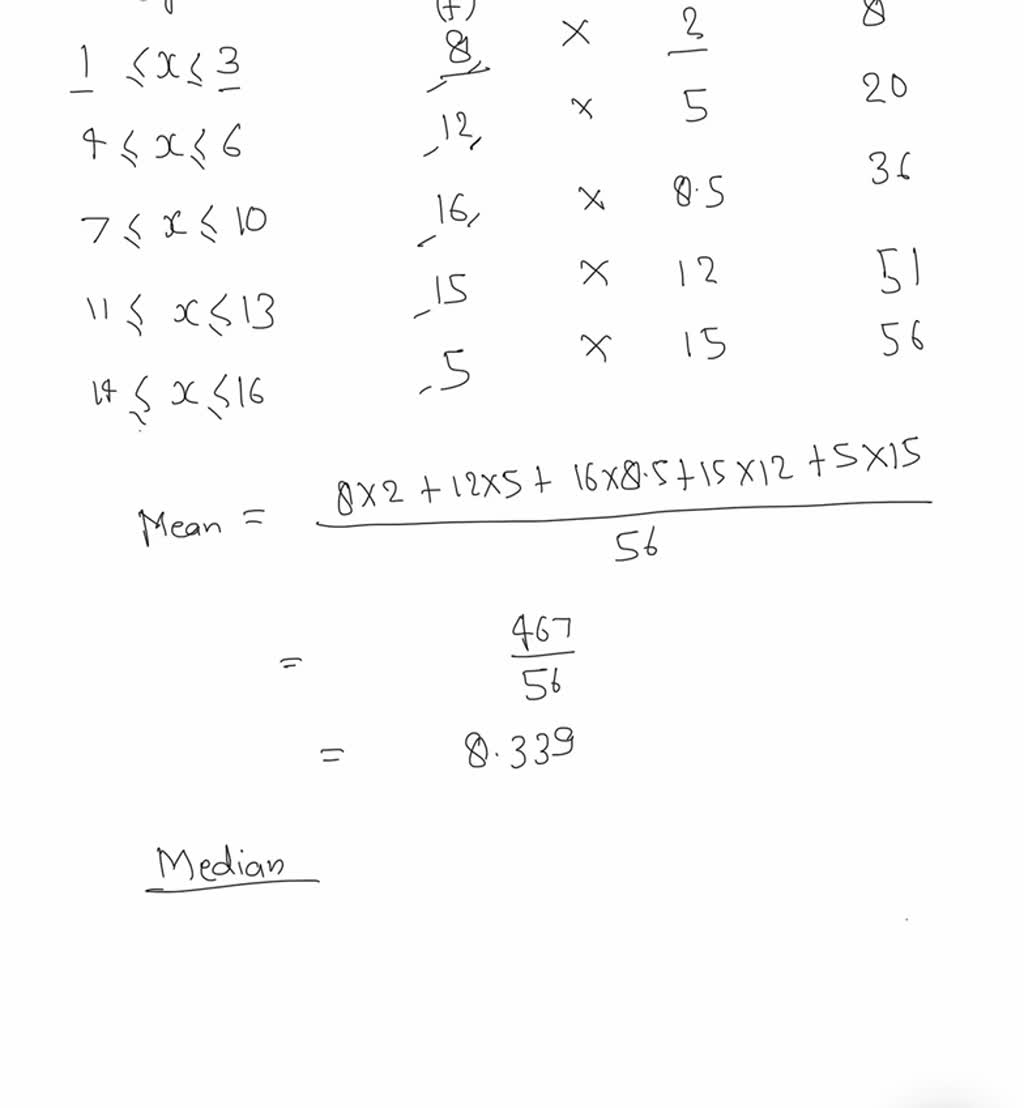 (f)
1 ≤ x ≤ 3 8 × 2 8
4 ≤ x ≤ 6 12 × 5 20
7 ≤ x ≤ 10 16 × 8.5 36
11 ≤ x ≤ 13 15 × 12 51
14 ≤ x ≤ 16 5 × 15 56
Mean = 8×2 + 12×5 + 16×8.5 + 15×12 + 5×15
56
= 467
56
= 8.339
Median